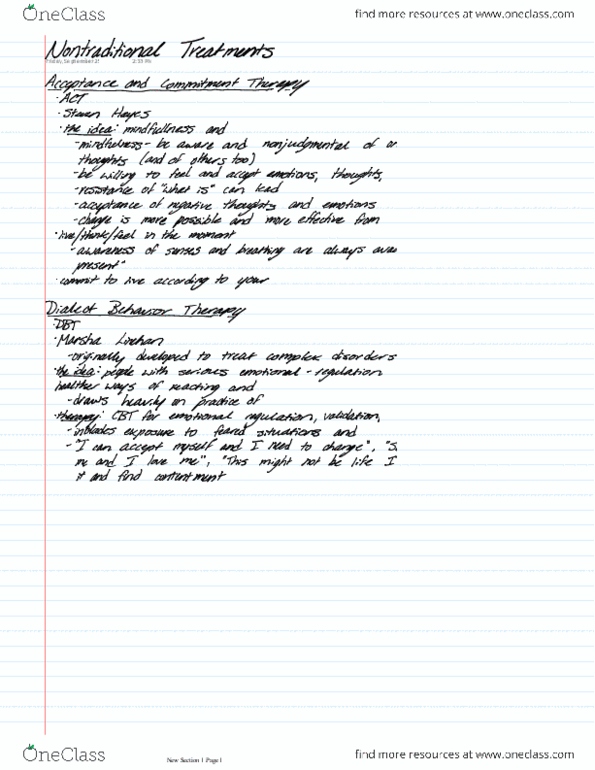 OneClass
find more resources at www.oneclass.com
Nontraditional Treatments
Friday, September 21 2:55 PM
Acceptance and Commitment Therapy
· ACT
· Steven Hayes
· the idea: mindfullness and
- mindfulness- be aware and nonjudgmental of or
thoughts (and of others too)
- be willing to feel and accept emotions, thoughts,
- resistance of "what is" can lead
- acceptance of negative thoughts and emotions
- change is more possible and more effective from
· live/think/feel in the moment
- awareness of senses and breathing are always
present"
· commit to live according to your
Dialect Behavior Therapy
· DBT
· Marsha Linehan
- originally developed to treat complex disorders
· the idea: people with serious emotional - regulation
healthier ways of reacting and
- draws heavily on practice of
· therapy: CBT for emotional regulation, validation,
- includes exposure to feared situations and
- "I can accept myself and I need to change",
me and I love me", "This might not be life I
it and find contentment
OneClass
New Section 1 Page 1
find more resources at www.oneclass.com